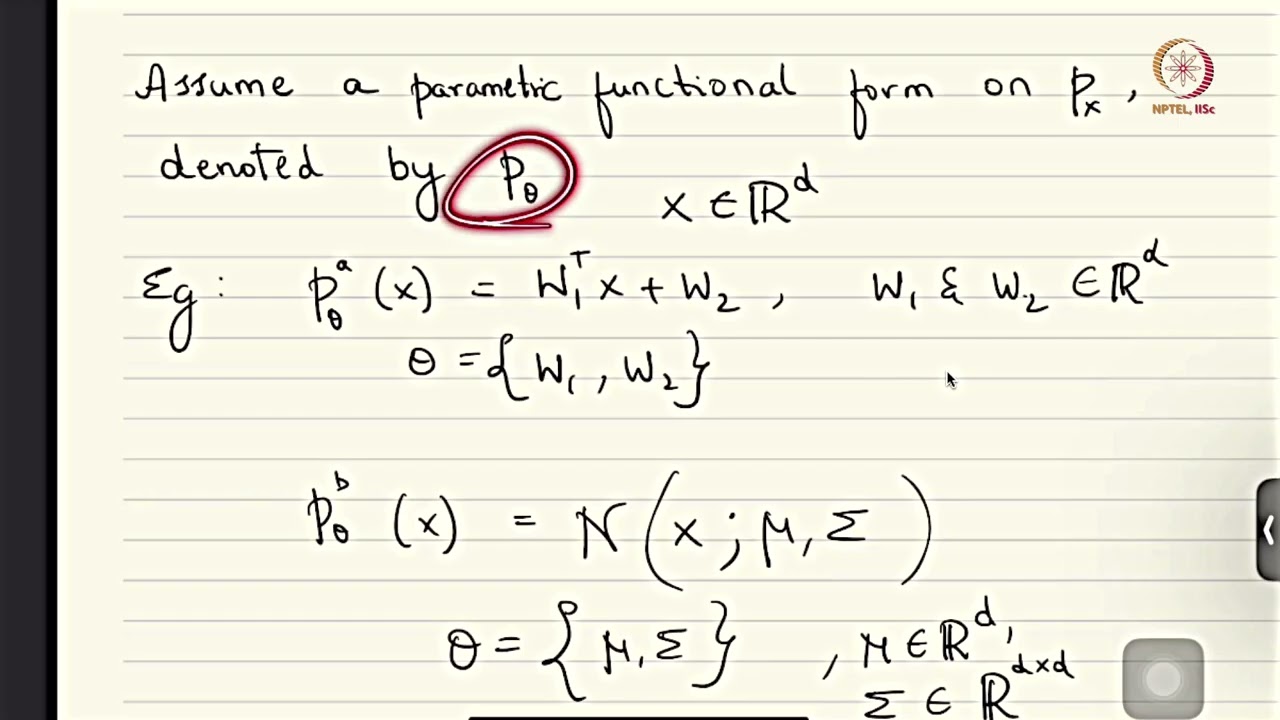 Assume a parametric functional form on pₓ,
NPTEL, IISc
denoted by p_θ x ∈ ℝ^d
Eg: p_θ^a (x) = W₁ᵀ x + W₂, W₁ & W₂ ∈ ℝ^d
θ = {W₁, W₂}
p_θ^b (x) = N(x; μ, Σ)
θ = {μ, Σ}, μ ∈ ℝ^d,
Σ ∈ ℝ^{d×d}